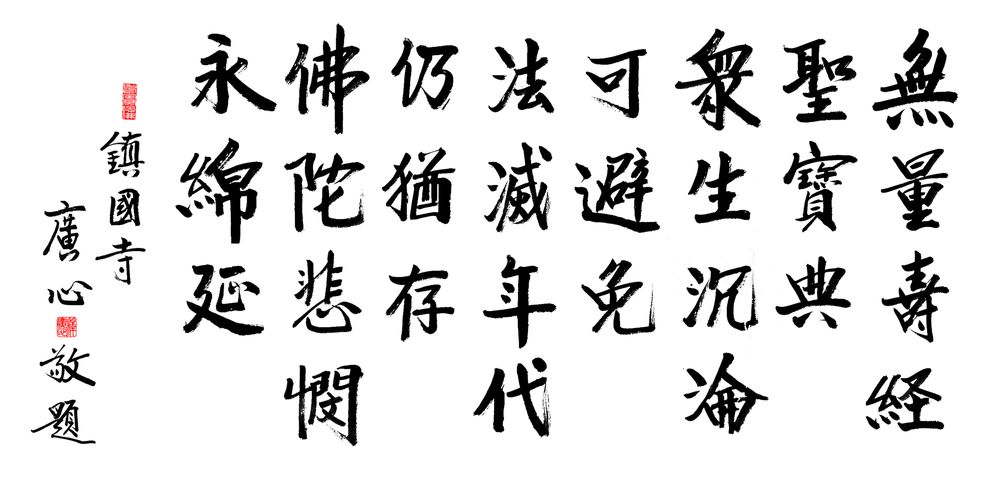 無量壽経
聖寶典
眾生沉淪
可避免
法滅年代
仍猶存
佛陀悲憫
永綿延
鎮國寺
廣心敬題